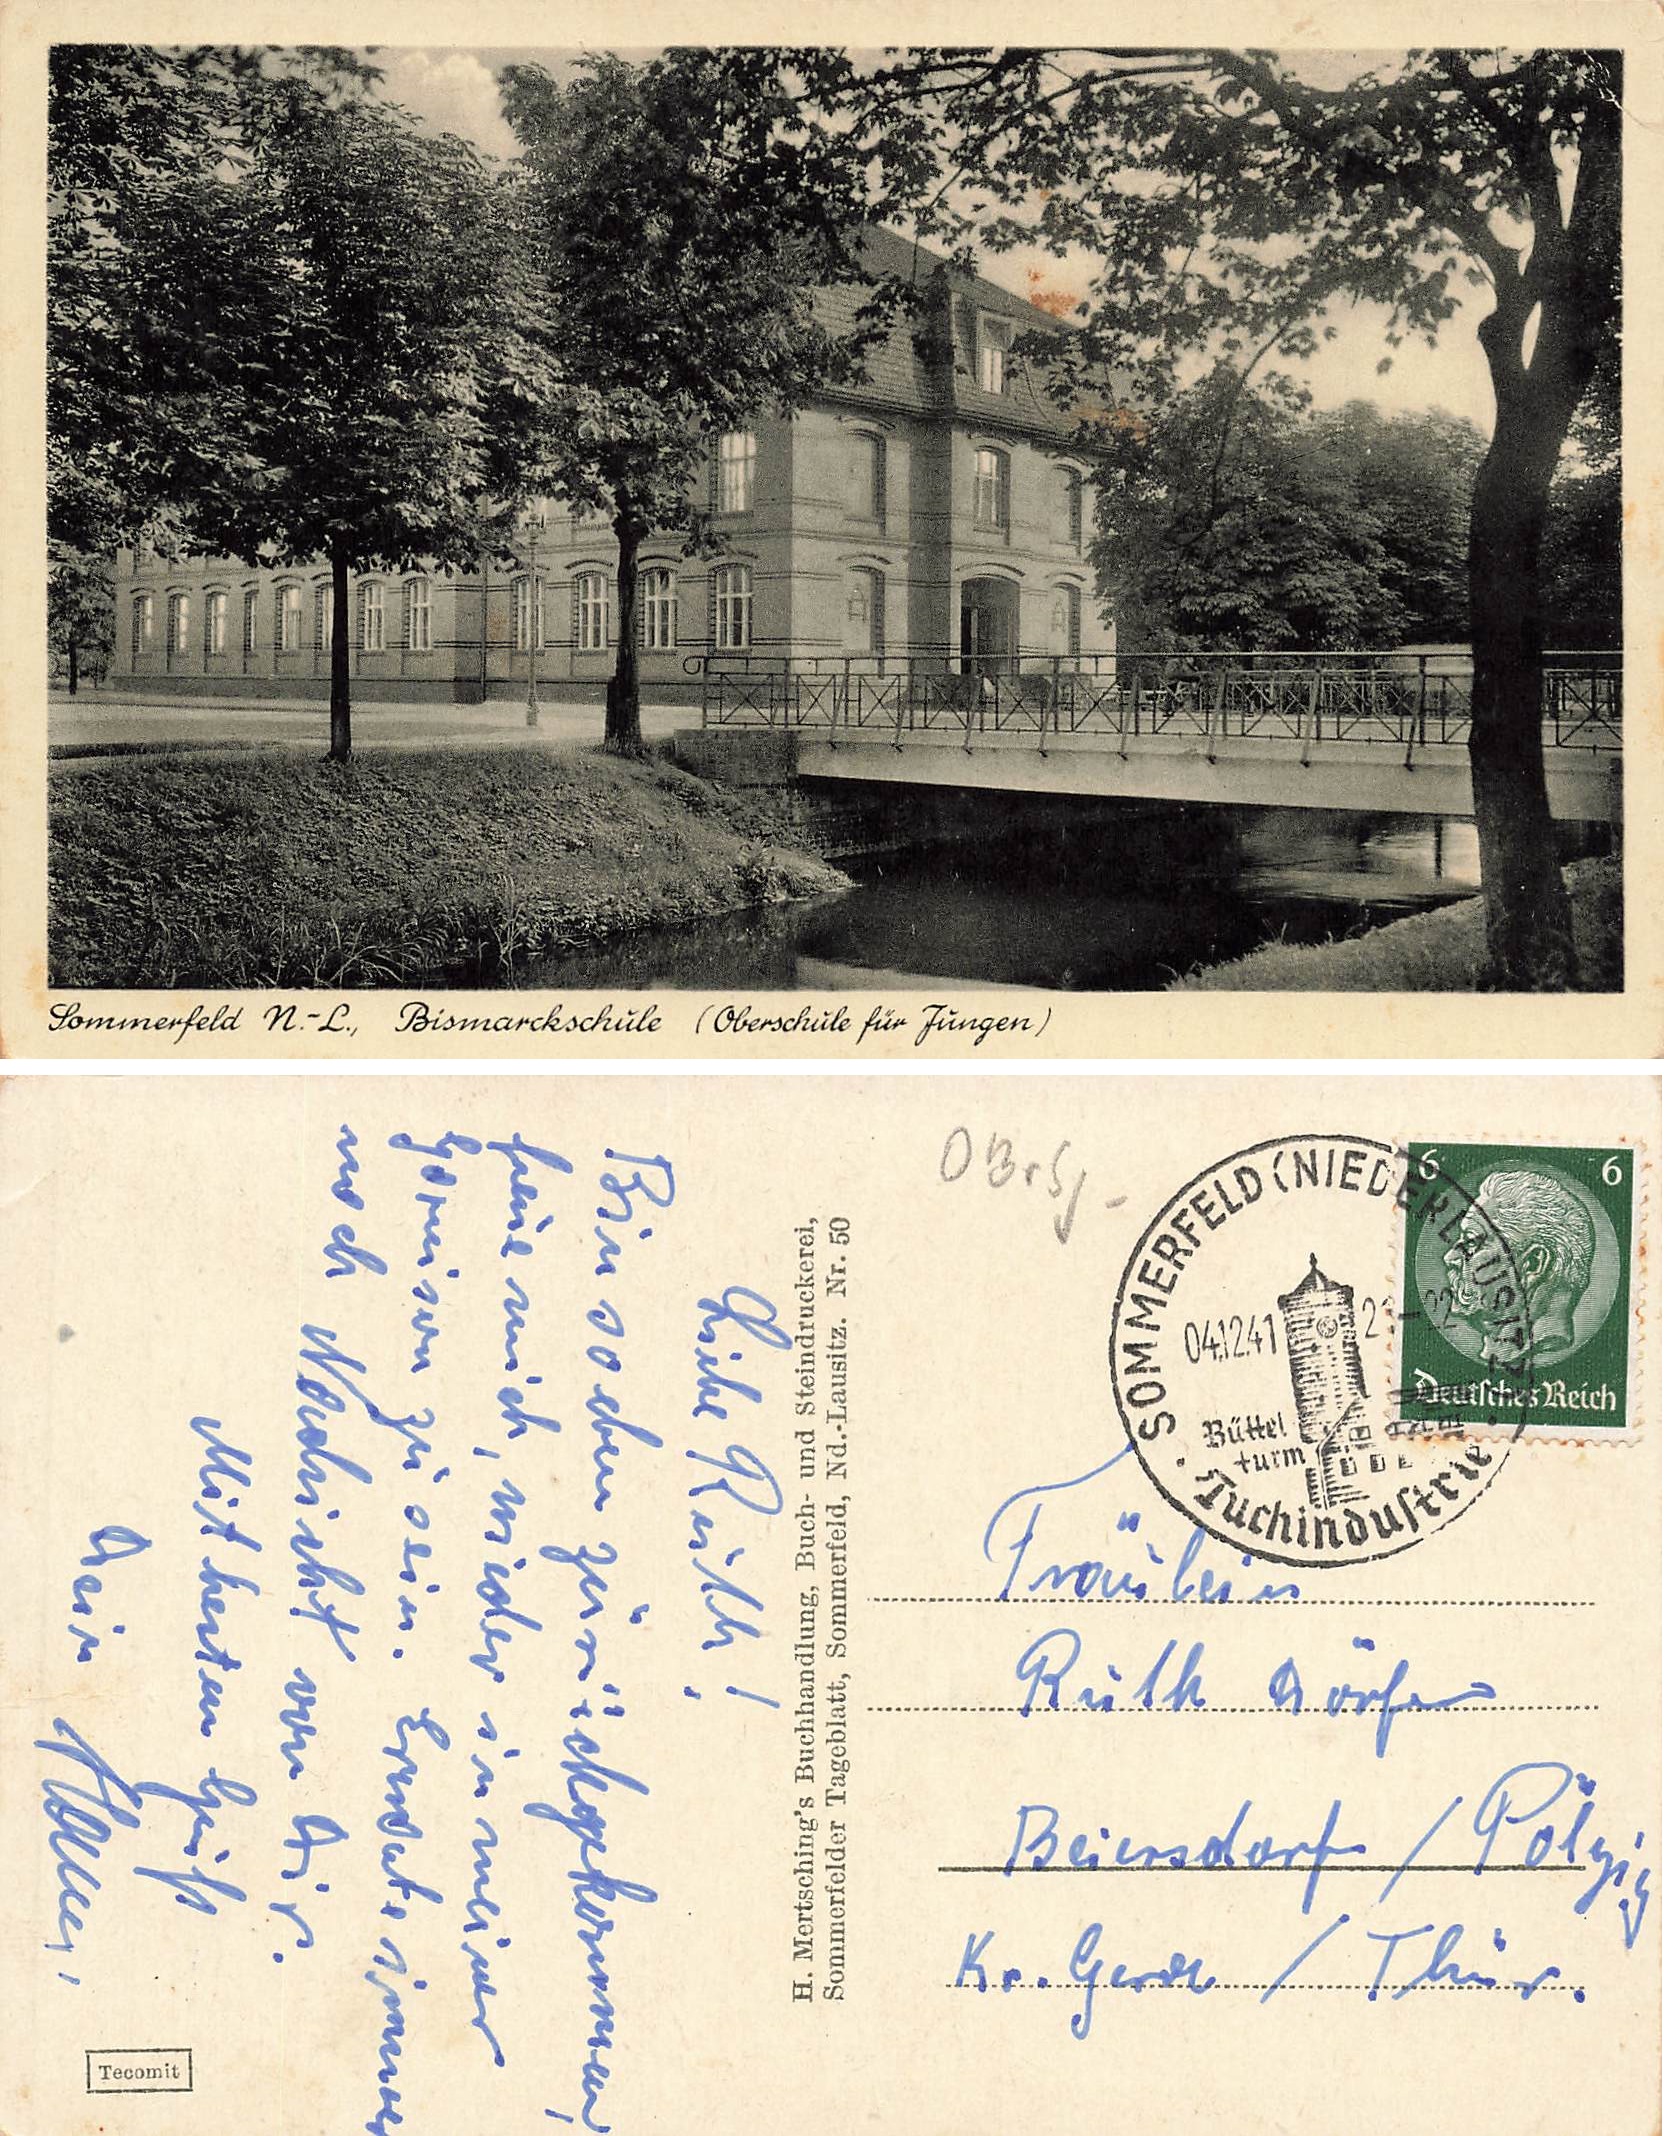 Sommerfeld N.-L., Bismarckschule (Oberschule für Jungen)
Liebe Ruth!
Bin soeben zurückgekommen,
freue mich, wieder in meiner
Garnison zu sein. Erwarte immer
noch Nachricht von Dir.
Mit besten Gruß
Dein
H. Mertsching's Buchhandlung, Buch- und Steindruckerei,
Sommerfelder Tageblatt, Sommerfeld, Nd.-Lausitz. Nr. 50
Tecomit
SOMMERFELD (NIEDERLAUSITZ)
04.12.41
Büttel
turm
Tuchindustrie
6 6
Deutsches Reich
Fräulein
Ruth Dörfer
Beiersdorf / Pölzig
Kr. Gera / Thür.